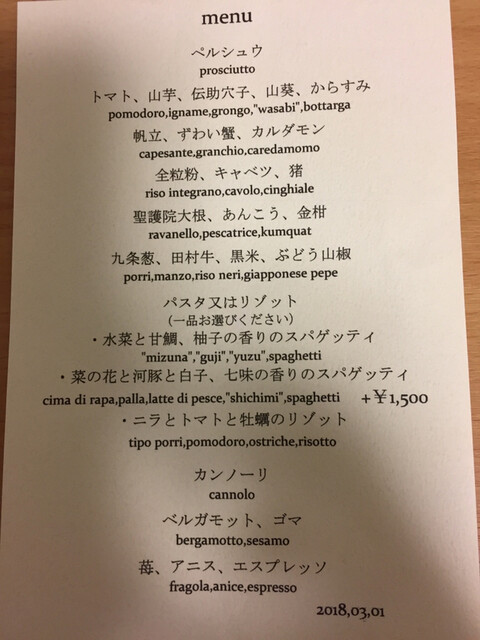 menu
ペルシュウ
prosciutto
トマト、山芋、伝助穴子、山葵、からすみ
pomodoro,igname,grongo,"wasabi",bottarga
帆立、ずわい蟹、カルダモン
capesante,granchio,caredamomo
全粒粉、キャベツ、猪
riso integrano,cavolo,cinghiale
聖護院大根、あんこう、金柑
ravanello,pescatrice,kumquat
九条葱、田村牛、黒米、ぶどう山椒
porri,manzo,riso neri,giapponese pepe
パスタ又はリゾット
(一品お選びください)
・水菜と甘鯛、柚子の香りのスパゲッティ
"mizuna","guji","yuzu",spaghetti
・菜の花と河豚と白子、七味の香りのスパゲッティ
cima di rapa,palla,latte di pesce,"shichimi",spaghetti +￥1,500
・ニラとトマトと牡蠣のリゾット
tipo porri,pomodoro,ostriche,risotto
カンノーリ
cannolo
ベルガモット、ゴマ
bergamotto,sesamo
苺、アニス、エスプレッソ
fragola,anice,espresso
2018,03,01